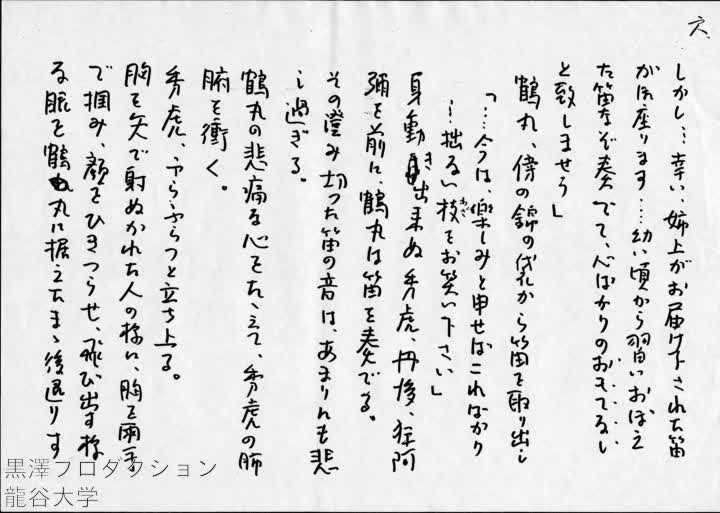 六
しかし…幸い、姉上がお届け下された笛
が御座ります……幼い頃から習いおぼえ
た笛なぞ奏でて、心ばかりのおもてなし
と致しませう」
鶴丸、傍の錦の袋から笛を取り出し
「…今は、楽しみと申せばこればかり
…拙い技をお笑い下さい」
わざ
身動き出来ぬ秀虎、丹後、狂阿
彌を前に、鶴丸は笛を奏でる。
その澄み切った笛の音は、あまりにも悲
し過ぎる。
鶴丸の悲痛な心をたゝえて、秀虎の肺
腑を衝く。
秀虎、ふらふらっと立ち上る。
胸を矢で射ぬかれた人の様に、胸を両手
で掴み、顔をひきつらせ、飛び出す様
な眼を鶴丸に据えたまゝ後退りす
黒澤プロダクション
龍谷大学